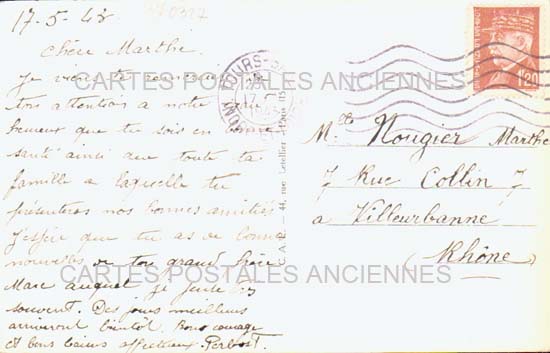 17-5-43
Chère Marthe.
Je viens te remercier
tes attentions a notre
heureux que tu sois en bonne
santé ainsi que toute ta
famille a laquelle tu
présenteras nos bonnes amitiés
J'espère que tu as de bonnes
nouvelles de ton grand frère
Marc auquel je pense très
souvent. Des jours meilleurs
arriveront bientôt. Bons courage
et bons baisers affectueux.
1F20
Melle Nougier Marthe
7 Rue Collin 7
a Villeurbanne
(Rhône)
C.A.P. — 44, rue Letellier
CARTES POSTALES ANCIENNES
CARTES POSTALES ANCIENNES